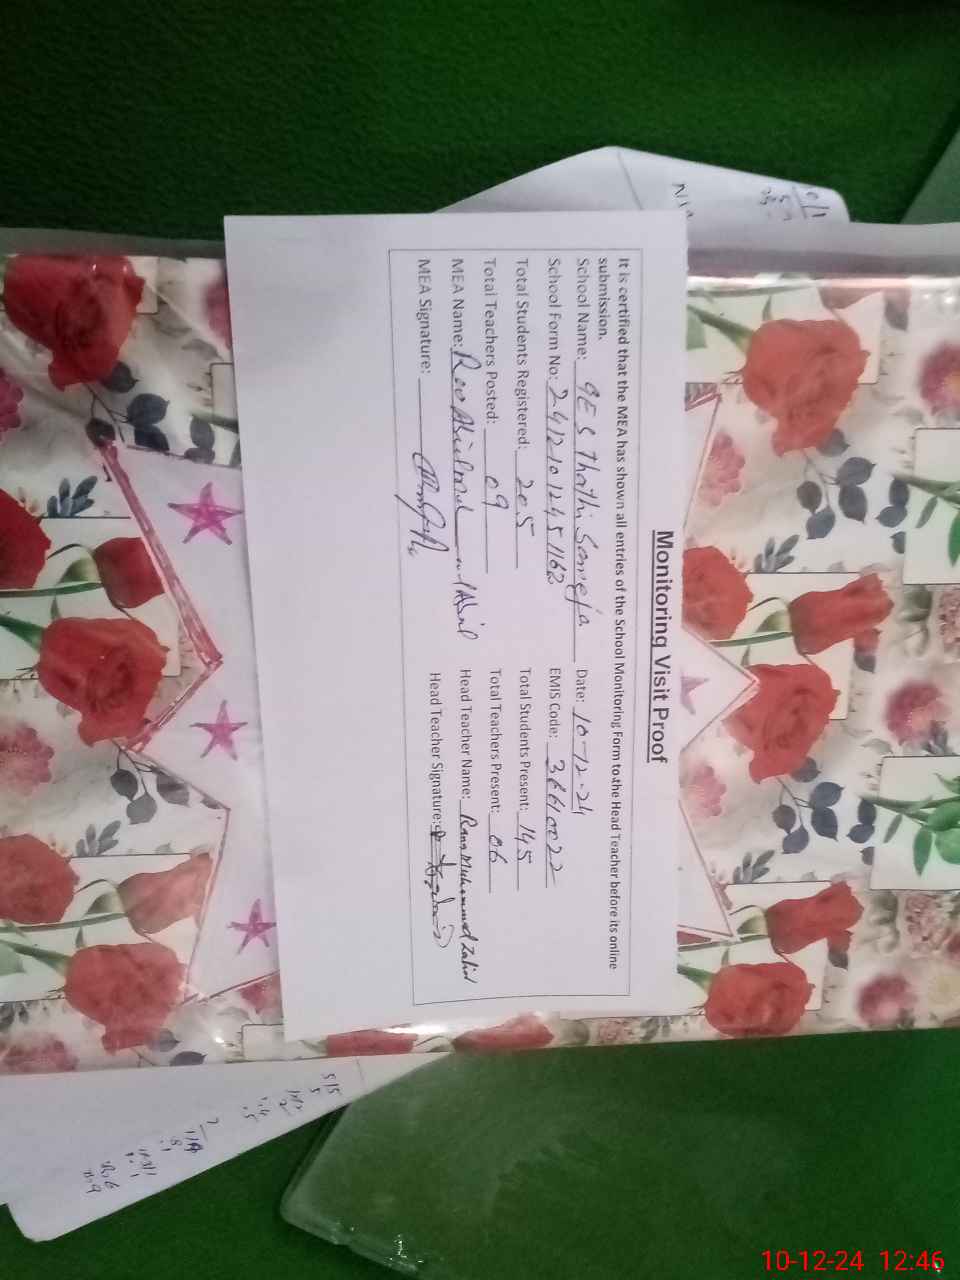 Monitoring Visit Proof
It is certified that the MEA has shown all entries of the School Monitoring Form to the Head Teacher before its online
submission.
School Name: GES Thathi Date: 10-12-24
School Form No: 24121012451162 EMIS Code: 36610022
Total Students Registered: 205 Total Students Present: 145
Total Teachers Posted: 09 Total Teachers Present: 06
MEA Name: Head Teacher Name: Rana Muhammad Zahid
MEA Signature: Head Teacher Signature:
10-12-24 12:46